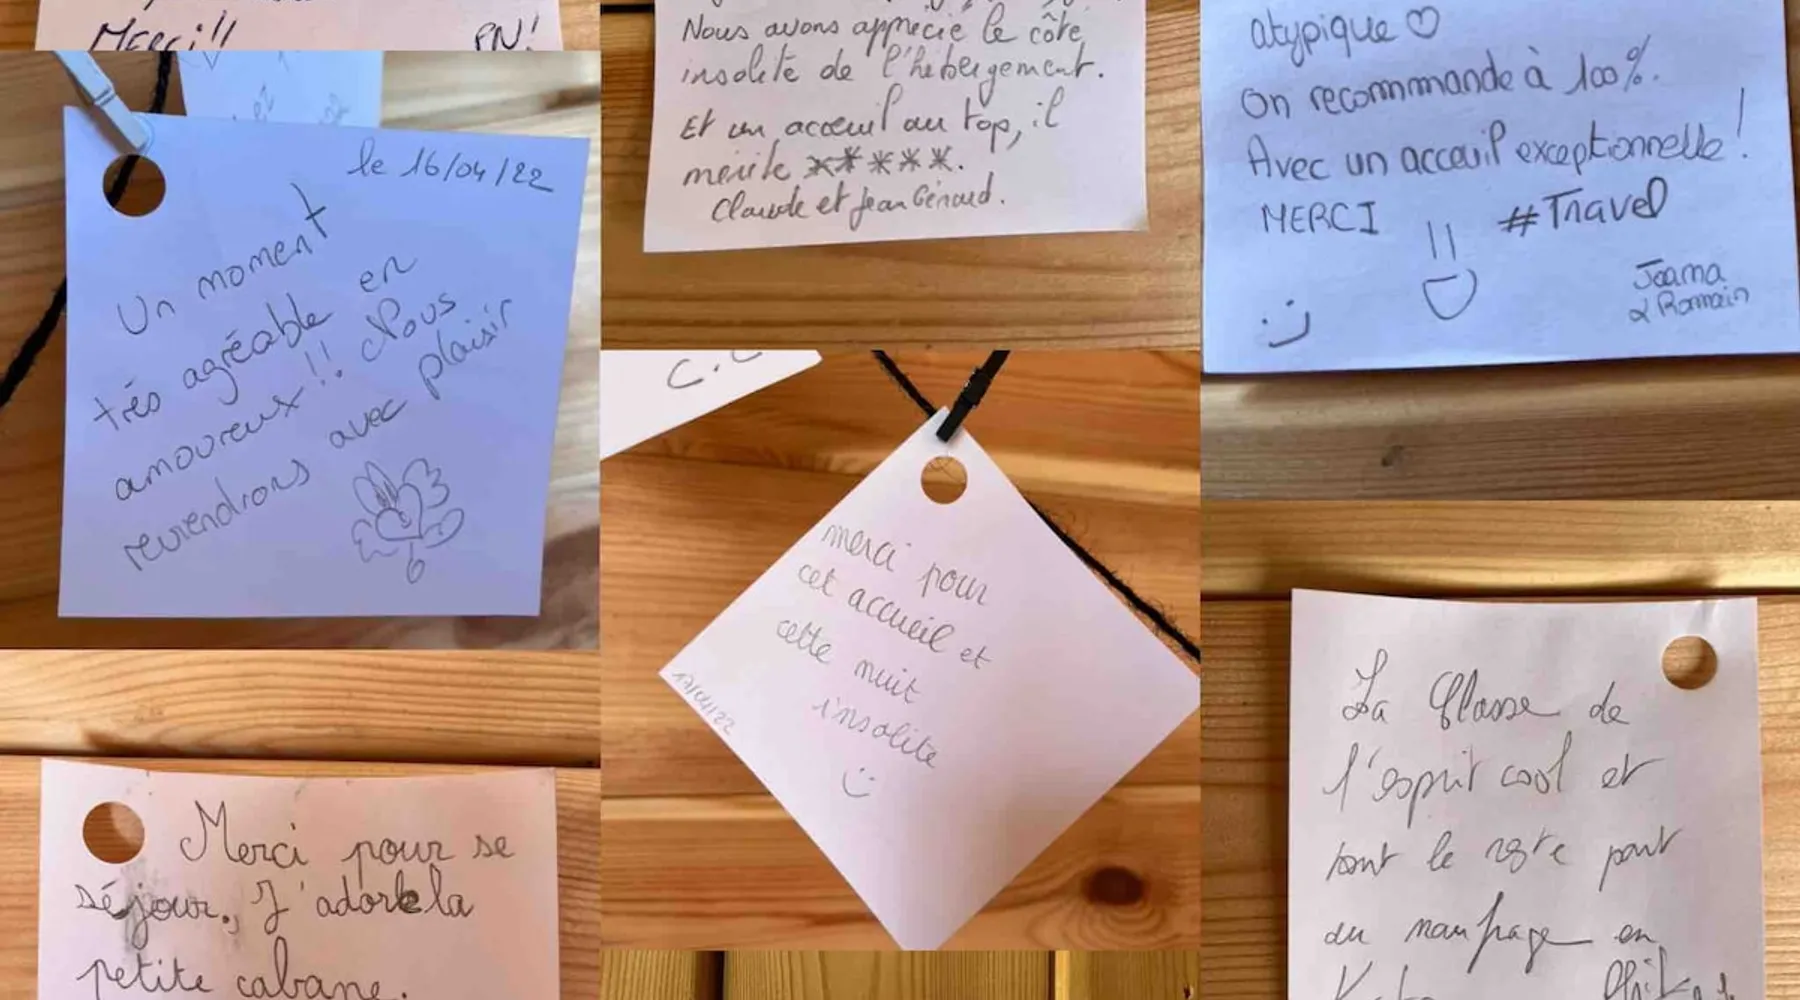 MERCI!!
PN!
le 16/04/22
Un moment
très agréable en
amoureux!! Nous
reviendrons avec plaisir
Merci pour se
séjour. J'adore la
petite cabane.
Nous avons apprécié le côte
insolite de l'hébergement.
Et un acceuil au top, il
mérite *****.
Claude et Jean Gérard.
C.C
merci pour
cet accueil et
cette nuit
insolite
17/04/22
atypique ♡
On recommande à 100%.
Avec un acceuil exceptionnelle!
MERCI
#Travel
Joama
& Romain
La Classe de
l'esprit cool et
tout le reste part
au naufrage en